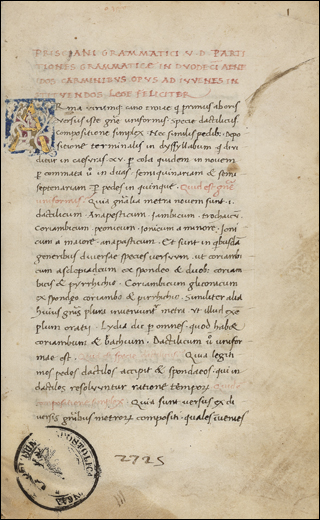 1
PRISCIANI GRAMMATICI V. D. PARTI
TIONES GRAMMATICE IN DVODECI AENE
IDOS CARMINIBVS OPVS AD IVVENES IN
STITVENDOS. LEGE FELICITER
Rma virumq; cano troiae q primus ab oris
versus iste gñe uniformis specie dactilicus
compositione simplex. Nec similis pedib; Depo
sitione terminalis in dyssyllabum q divi
ditur in caesuras .xv. p cola quidem in novem
p commata ů in duas semiquinariam & semi
septenariam p pedes in quinque. Quid est gñe
uniformis. Quia gñalia metra novem sunt .i.
dactilicum. Anapesticum. Iambicum. trochaicũ.
Coriambicum. peonicum. Ionicum a minore. Ioni
cum a maiore. anapasticum. Et sunt in qbusdã
generibus diversae species versuum. ut coriambi
cum asclepiadeum ex spondeo & duob; coriam
bicis & pyrrhichio. Coriambicum gliconicum
ex spondeo coriambo & pyrrhichio. similiter alia
huius gñis plura invenunt metra ut illud exẽ
plum oratii. Lydia dic p omnes. quod habet
coriambum & bachium. Dactilicum ů unifor
mae est. Quia legiti
mos pedes dactilos accipit & spondaeos. qui in
dactilos resolvuntur ratione temporz. Quid ẽ
compositione simplex. Quia sunt versus ex di
versis gñribus metrorz compositi. quales iuvenes
2725